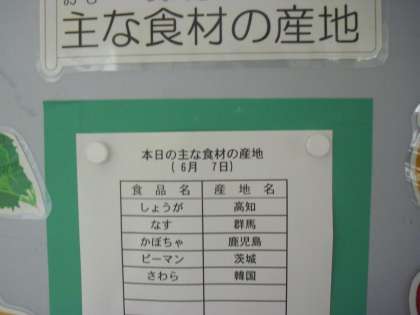 主な食材の産地
本日の主な食材の産地
(6月 7日)
食品名 産地名
しょうが 高知
なす 群馬
かぼちゃ 鹿児島
ピーマン 茨城
さわら 韓国